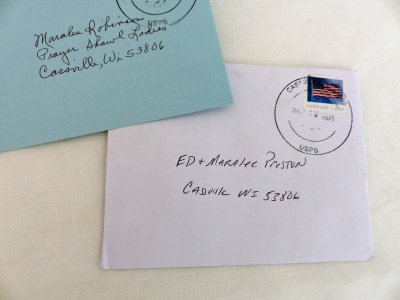 USPS
Maralee Robinson
Prayer Shawl Ladies
Cassville, Wi 53806
FOREVER USA
USPS
ED + Maralee Preston
Cassville WI 53806